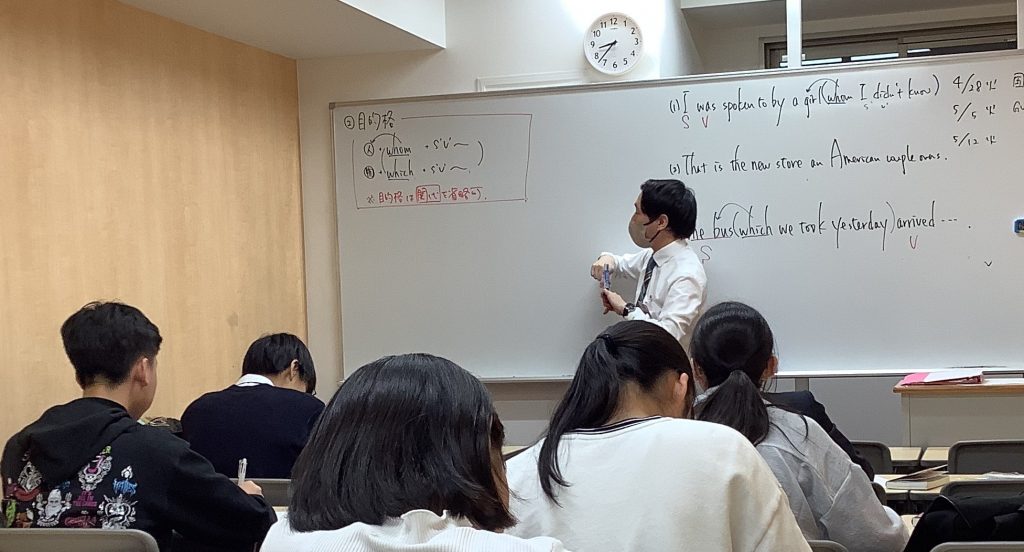 ② 目的格
人 ・ whom ・ s'v' ～
物 ・ which ・ s'v' ～
※ 目的格は関代を省略可.
(1) I was spoken to by a girl (whom I didn't know)
S V s' v'
(2) That is the new store an American couple owns.
bus (which we took yesterday) arrived ….
S V
4/28 火
5/5 火
5/12 火
12 1 2 3 4 5 6 7 8 9 10 11